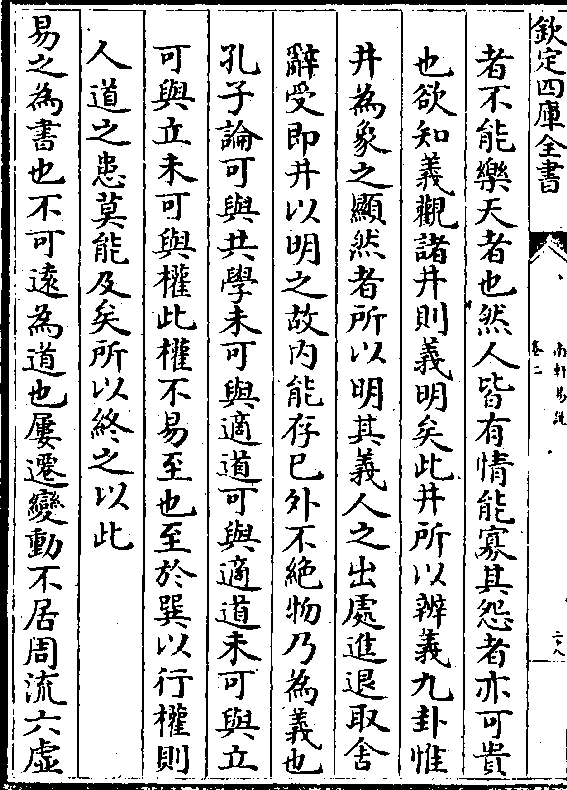 欽定四庫全書
南軒易說
卷二
二十八
者不能樂天者也然人皆有情能寡其怨者亦可貴
也欲知義觀諸井則義明矣此井所以辨義九卦惟
井為象之顯然者所以明其義人之出處進退取舍
辭受即井以明之故内能存已外不絶物乃為義也
孔子論可與共學未可與適道可與適道未可與立
可與立未可與權此權不易至也至於巽以行權則
人道之患莫能及矣所以終之以此
易之為書也不可遠為道也屢遷變動不居周流六虛